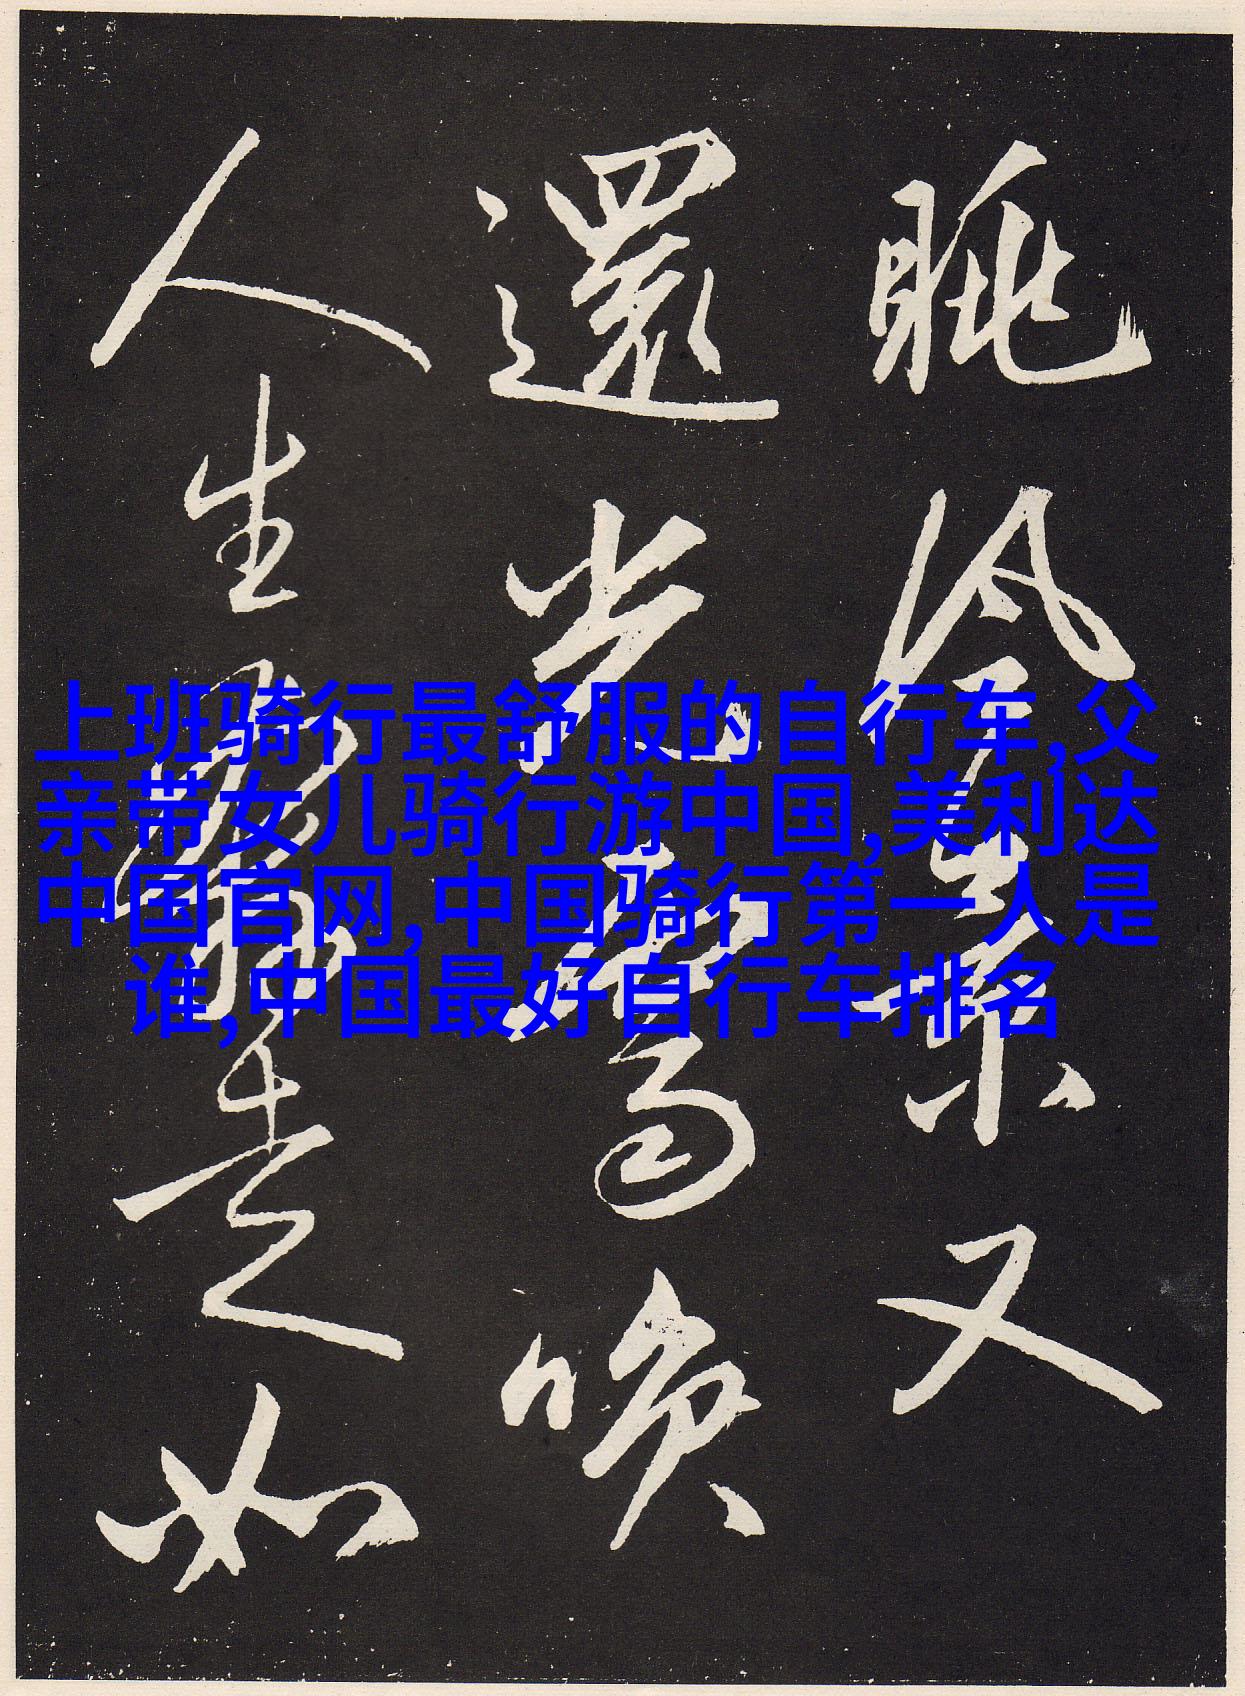 上班骑行最舒服的自行车,父
亲带女儿骑行游中国,美利达
中国官网,中国骑行第一人是
谁,中国最好自行车排名
眺 景又
還光 喚
人生 走如